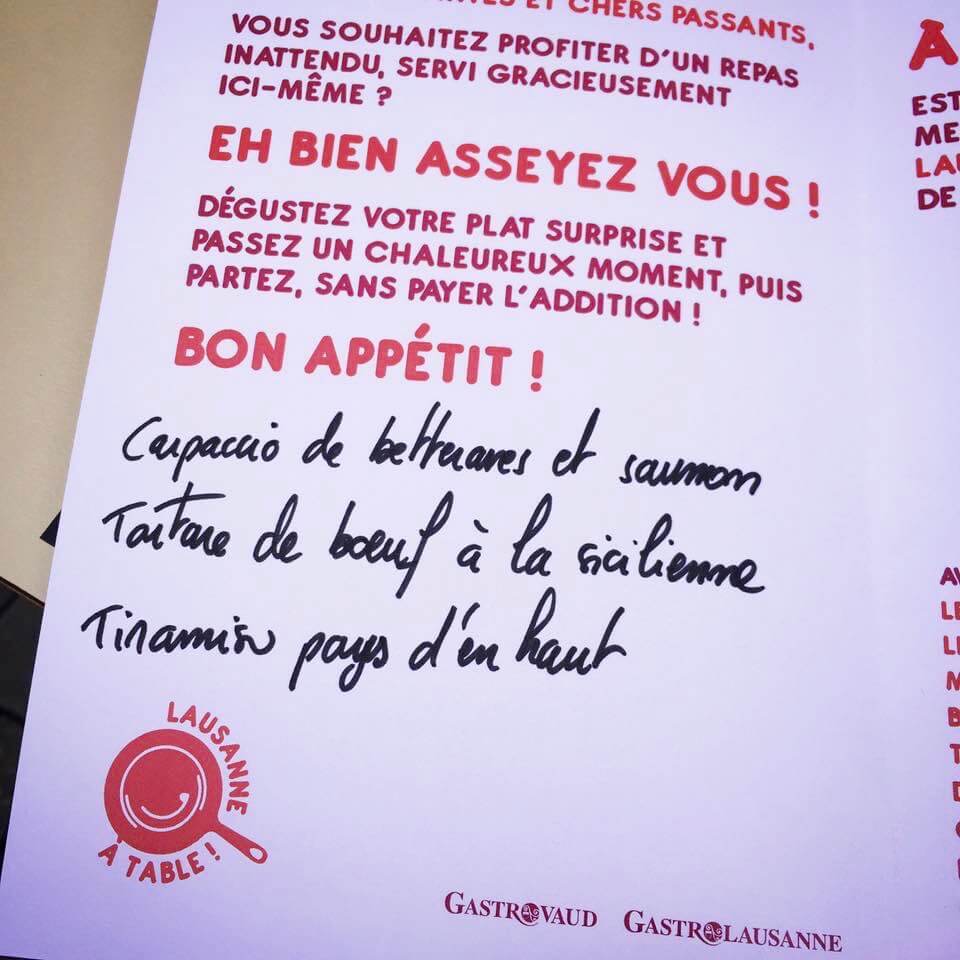 ET CHERS PASSANTS,
VOUS SOUHAITEZ PROFITER D'UN REPAS
INATTENDU, SERVI GRACIEUSEMENT
ICI-MÊME ?
EH BIEN ASSEYEZ VOUS !
DÉGUSTEZ VOTRE PLAT SURPRISE ET
PASSEZ UN CHALEUREUX MOMENT, PUIS
PARTEZ, SANS PAYER L'ADDITION !
BON APPÉTIT !
Carpaccio de betteraves et saumon
Tartare de bœuf à la sicilienne
Tiramisu pays d'en haut
LAUSANNE
À TABLE !
GASTROVAUD GASTROLAUSANNE
EST
ME
LAU
DE
AV
LE